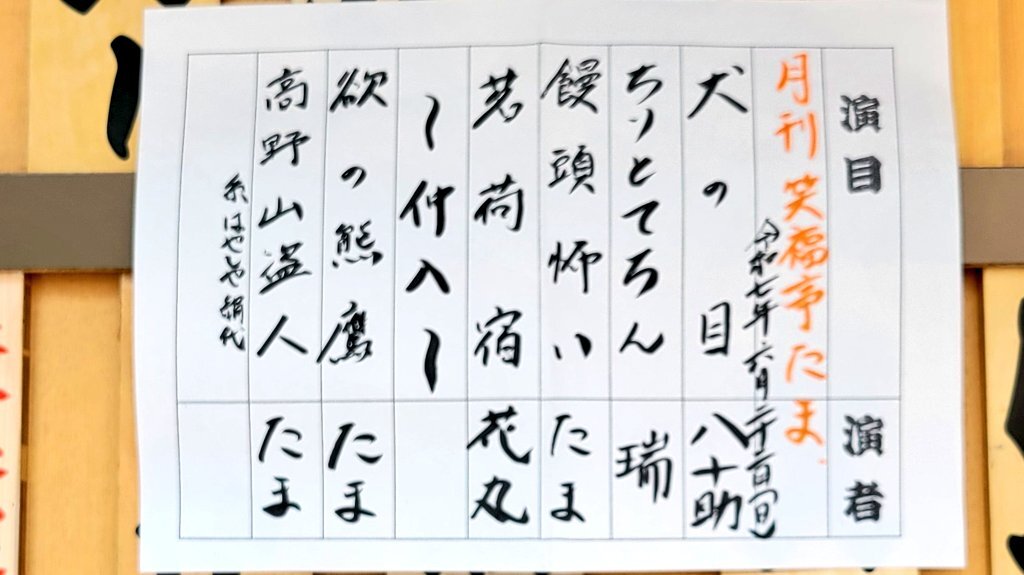 演目 演者
月刊笑福亭たま
令和七年六月二十二日(日)
犬の目 八十助
ちりとてちん 瑞
饅頭怖い たま
茗荷宿 花丸
~仲入~
欲の熊鷹 たま
高野山盗人 たま
糸 はやしや絹代